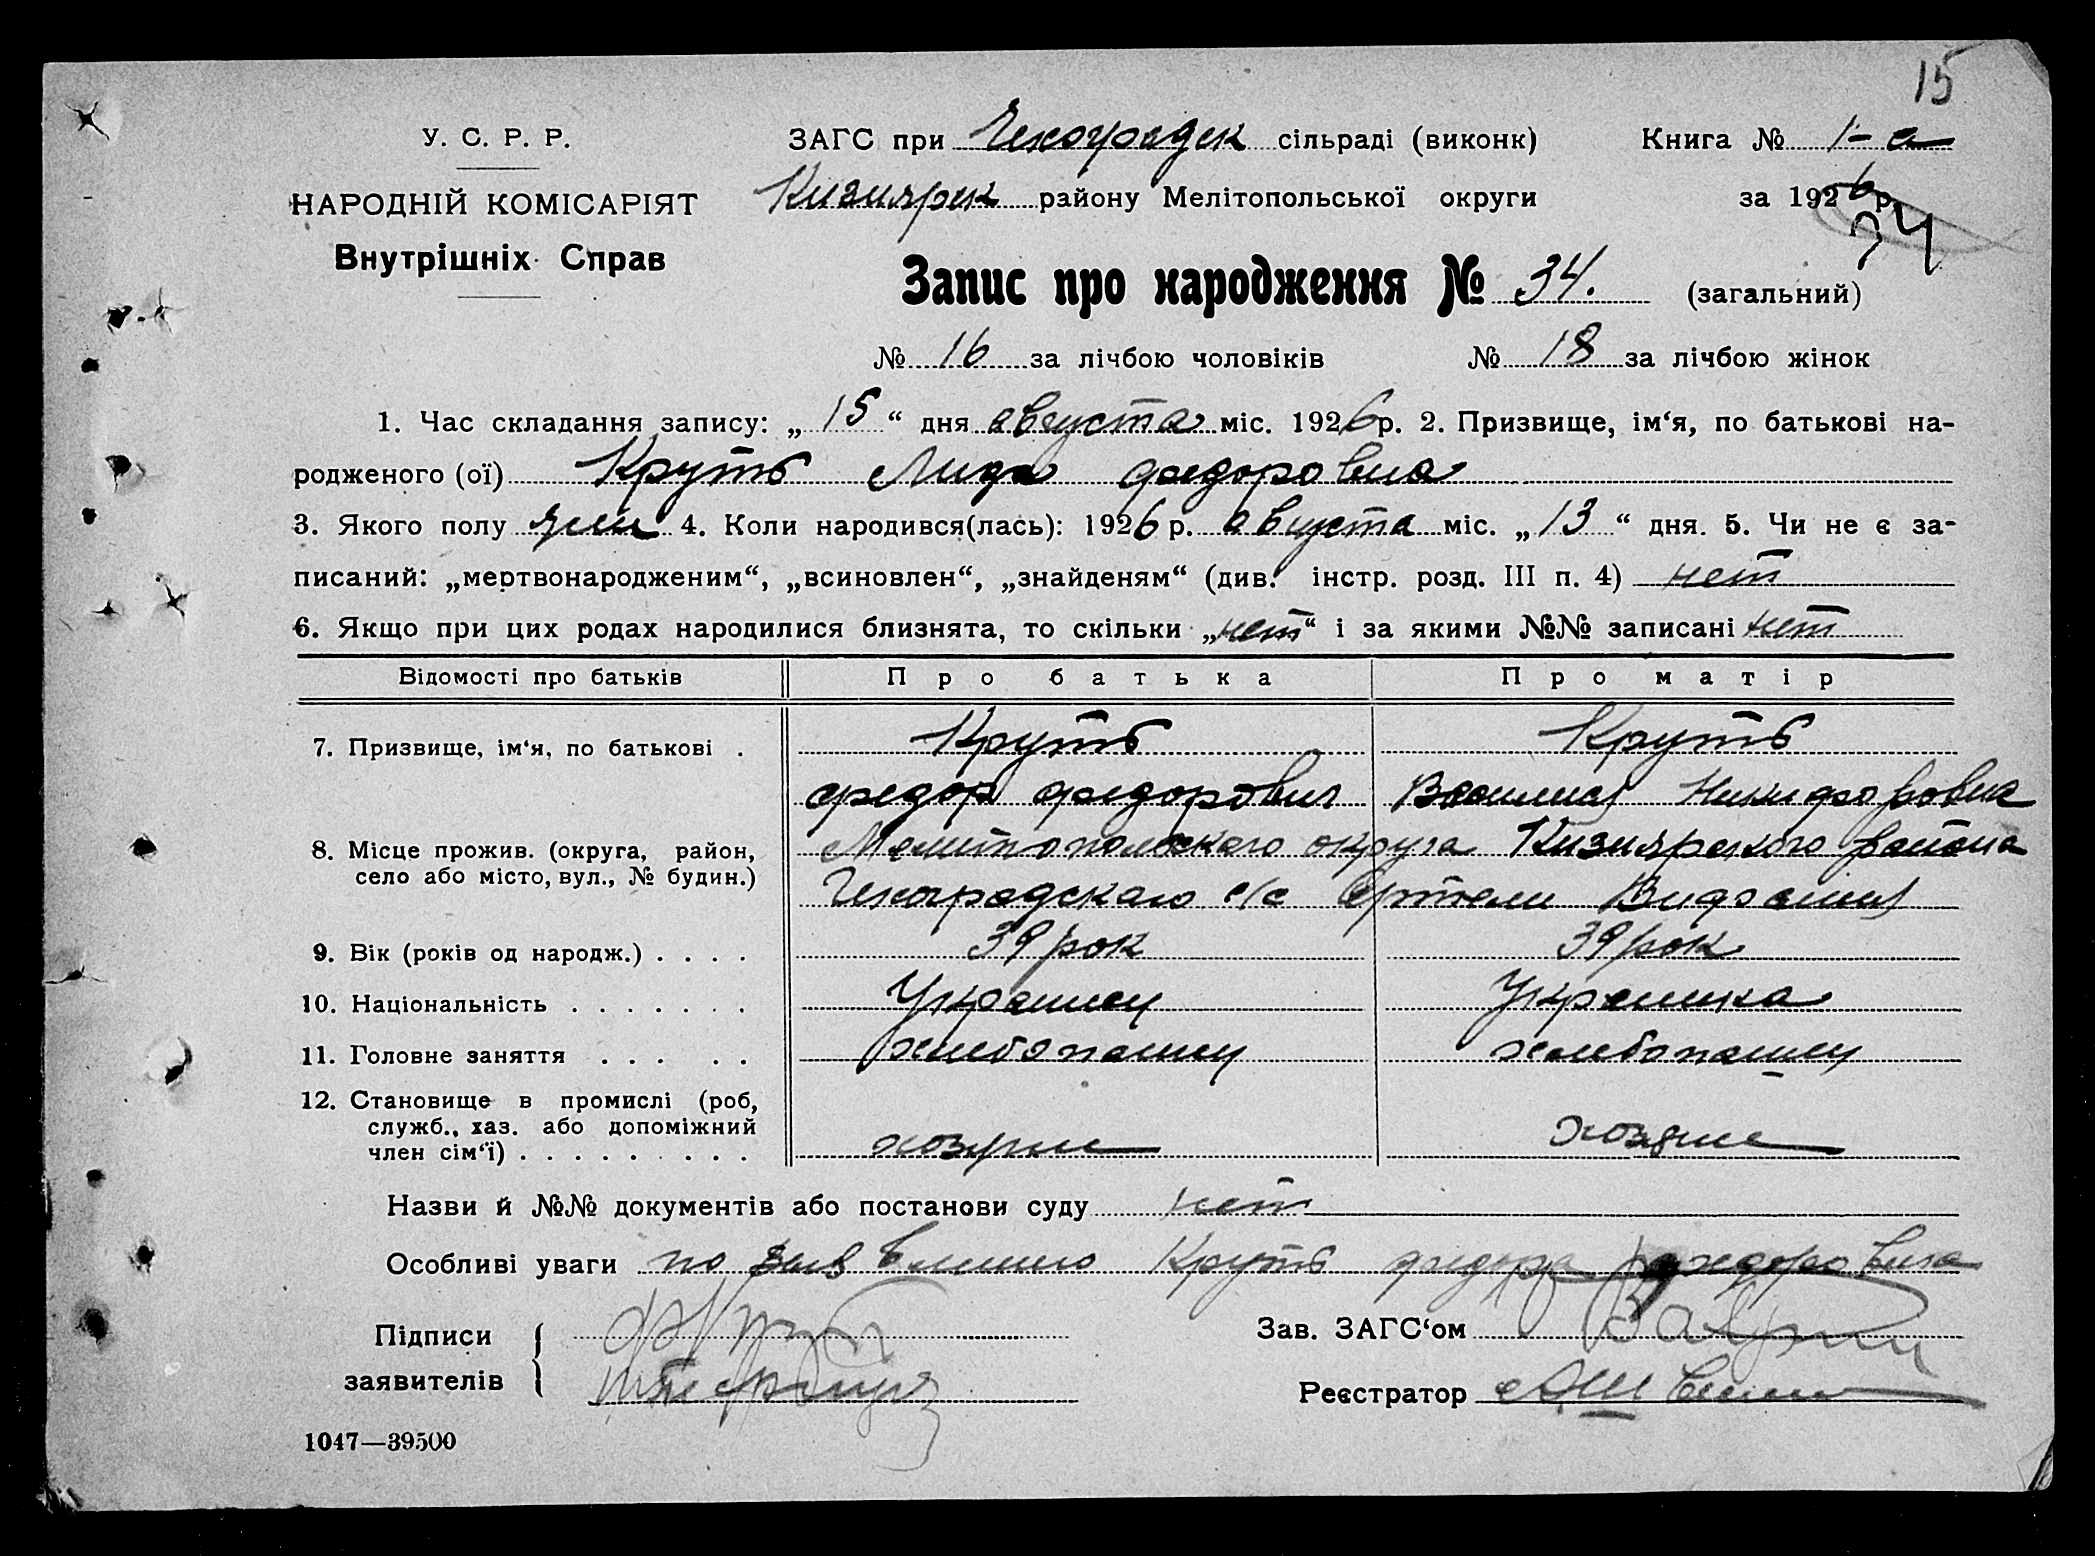 15
У. С. Р. Р.
ЗАГС при Чехоградск сільраді (виконк)
Книга № 1-а
НАРОДНІЙ КОМІСАРІЯТ
Кизиярск району Мелітопольської округи
за 1926 р.
34
Внутрішніх Справ
Запис про народження № 34. (загальний)
№ 16 за лічбою чоловіків № 18 за лічбою жінок
1. Час складання запису: „ 15 “ дня августа міс. 1926 р. 2. Призвище, ім‘я, по батькові на-
родженого (ої) Круть Лида федоровна
3. Якого полу жен 4. Коли народився(лась): 1926 р. августа міс. „ 13 “ дня. 5. Чи не є за-
писаний: „мертвонародженим“, „всиновлен“, „знайденям“ (див. інстр. розд. III п. 4) нет
6. Якщо при цих родах народилися близнята, то скільки „нет“ і за якими №№ записані нет
Відомості про батьків Про батька Про матір
7. Призвище, ім‘я, по батькові . Круть Круть
федор федорович Никифоровна
8. Місце прожив. (округа, район, Мелитопольского округа Кизиярского района
село або місто, вул., № будин.) Чехоградскаго с/с Артели
9. Вік (років од народж.) . . . . 39 рок 39 рок
10. Національність . . . . . . . Украинец Украинка
11. Головне заняття . . . . . хлебопашец хлебопашец
12. Становище в промислі (роб,
служб., хаз. або допоміжний хозяин хозяин
член сім‘ї) . . . . . . . . .
Назви й №№ документів або постанови суду нет
Особливі уваги по заявлению Круть федора федоровича
Підписи
заявителів
Зав. ЗАГС‘ом
Реєстратор
1047—39500